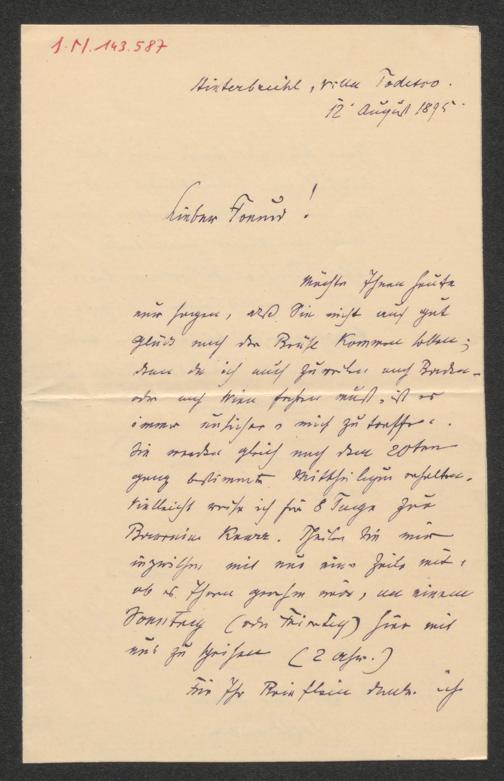 J.N. 143.587
Hinterbrühl, Villa Todesco.
12. August 1895.
Lieber Freund!
Möchte Ihnen heute
nur sagen, daß Sie nicht auf gut
Glück nach der Brühl kommen sollen;
denn da ich auch zuweilen nach Baden
oder nach Wien fahren muß, ist es
immer unsicher mich zu treffen.
Sie werden gleich nach dem 20ten
ganz bestimmte Mittheilung erhalten.
Vielleicht reise ich für 8 Tage zur
Baronin Knorr. Theilen Sie mir
inzwischen mit nur einer Zeile mit,
ob es Ihnen genehm wäre, an einem
Sonntag (oder Feiertag) hier mit
uns zu speisen (2 Uhr.)
Für Ihr Brieflein danke ich